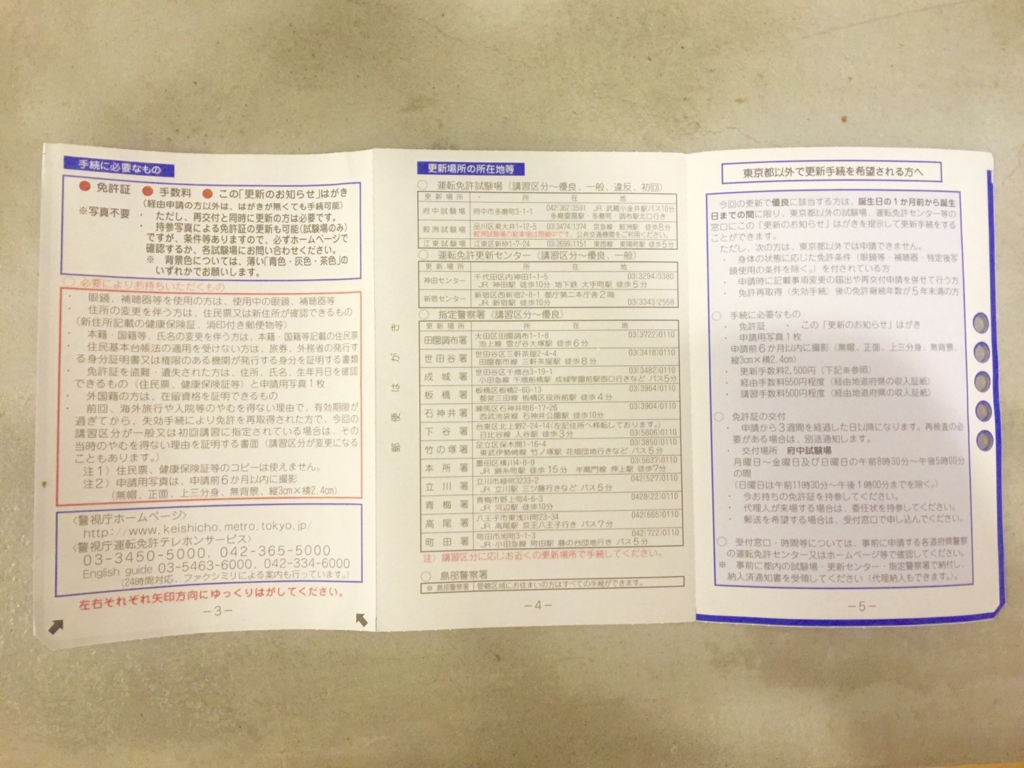 手続に必要なもの
● 免許証 ● 手数料 ● この「更新のお知らせ」はがき
(経由申請の方以外は、はがきが無くても手続可能)
※写真不要 ・ ただし、再交付と同時に更新の方は必要です。
・ 持参写真による免許証の更新も可能(試験場のみ)
ですが、条件等ありますので、必ずホームページで
確認するか、各試験場にお問い合わせください。
※ 背景色については、薄い「青色・灰色・茶色」の
いずれかでお願いします。
○ 必要によりお持ちいただくもの
・ 眼鏡、補聴器等を使用の方は、使用中の眼鏡、補聴器等
・ 住所の変更を伴う方は、住民票又は新住所が確認できるもの
(新住所記載の健康保険証、消印付き郵便物等)
・ 本籍・国籍等、氏名の変更を伴う方は、本籍・国籍等記載の住民票
・ 住民基本台帳法の適用を受けない方は、旅券、外務省の発行す
る身分証明書又は権限のある機関が発行する身分を証明する書類
・ 免許証を盗難・遺失された方は、住所、氏名、生年月日を確認
できるもの(住民票、健康保険証等)と申請用写真1枚
・ 外国籍の方は、在留資格を証明できるもの
・ 前回、海外旅行や入院等のやむを得ない理由で、有効期限が
過ぎてから、失効手続により免許を再取得された方で、今回の
講習区分が一般又は初回講習に指定されている場合は、その
当時のやむを得ない理由を証明する書面(講習区分が変更になる
こともあります。)
注1) 住民票、健康保険証等のコピーは使えません。
注2) 申請用写真は、申請前6か月以内に撮影
(無帽、正面、上三分身、無背景、縦3cm×横2.4cm)
〈警視庁ホームページ〉
http://www.keishicho.metro.tokyo.jp/
〈警視庁運転免許テレホンサービス〉
03-3450-5000、042-365-5000
English guide 03-5463-6000、042-334-6000
(24時間対応、ファクシミリによる案内も行っています。)
左右それぞれ矢印方向にゆっくりはがしてください。
-3-
郵便はがき
更新場所の所在地等
○ 運転免許試験場 (講習区分~優良、一般、違反、初回)
更新場所 所在地
府中試験場 府中市多磨町3-1-1 042(362)3591 JR 武蔵小金井駅バス10分
多磨霊園駅・多磨駅・調布駅北口行き
鮫洲試験場 品川区東大井1-12-5 03(3474)1374 京急線 鮫洲駅 徒歩8分
江東試験場 江東区新砂1-7-24 03(3699)1151 東西線 東陽町駅 徒歩5分
○ 運転免許更新センター (講習区分~優良、一般)
更新場所 所在地
神田センター 千代田区内神田1-1-5 03(3294)3380
JR 神田駅 徒歩10分 地下鉄 大手町駅 徒歩5分
新宿センター 新宿区西新宿2-8-1 都庁第二本庁舎2階
JR 新宿駅 徒歩10分 03(3343)2558
○ 指定警察署 (講習区分~優良)
更新場所 所在地
田園調布署 大田区田園調布1-1-8 03(3722)0110
世田谷署 世田谷区三軒茶屋2-4-4 03(3418)0110
田園都市線 三軒茶屋駅 徒歩8分
成城署 世田谷区千歳台3-19-1 03(3482)0110
小田急線 千歳船橋駅 成城学園前駅西口行きなど バス5分
板橋署 板橋区板橋2-60-13 03(3964)0110
都営三田線 板橋区役所前駅 徒歩4分
石神井署 練馬区石神井町6-17-26 03(3904)0110
西武池袋線 石神井公園駅 徒歩10分
下谷署 台東区北上野2-24-14(左記住所へ移転しております。)
日比谷線 入谷駅 徒歩3分 03(5806)0110
竹の塚署 足立区保木間1-16-4 03(3850)0110
東武伊勢崎線 竹ノ塚駅 花畑団地行きなど バス5分
本所署 墨田区横川4-8-9 03(5637)0110
JR 錦糸町駅 徒歩15分 半蔵門線 押上駅 徒歩7分
立川署 立川市緑町3233-2 042(527)0110
青梅署 青梅市野上町4-6-3 0428(22)0110
JR 河辺駅 徒歩10分
高尾署 八王子市東浅川町23-34 042(665)0110
JR 高尾駅 京王八王子行き バス7分
町田署 町田市旭町3-1-3 042(722)0110
JR 小田急線 町田駅 藤の台団地行き バス5分
注) 講習区分に応じお近くの更新場所で手続してください。
○ 島部警察署
※ 島部警察署 管轄区域にお住まいの方はすべての手続ができます。
-4-
東京都以外で更新手続を希望される方へ
今回の更新で優良に該当する方は、誕生日の1か月前から誕生
日までの間に限り、東京都以外の試験場、運転免許センター等の
窓口にこの「更新のお知らせ」はがきを提示して更新手続をする
ことができます。
ただし、次の方は、東京都以外では申請できません。
・ 身体の状態に応じた免許条件(眼鏡等・補聴器・特定後写
鏡使用の条件を除く。)を付されている方
・ 申請時に記載事項変更の届出や再交付申請を併せて行う方
・ 免許再取得(失効手続)後の免許継続年数が5年未満の方
○ 手続に必要なもの
・ 免許証 ・ この「更新のお知らせ」はがき
・ 申請用写真1枚
申請前6か月以内に撮影(無帽、正面、上三分身、無背景、
縦3cm×横2.4cm)
・ 更新手数料2,500円(下記※参照)
・ 経由手数料550円程度(経由地道府県の収入証紙)
・ 講習手数料500円程度(経由地道府県の収入証紙)
○ 免許証の交付
・ 申請から3週間を経過した日以降になります。再検査の必
要がある場合は、別途通知します。
・ 交付場所 府中試験場
月曜日~金曜日及び日曜日の午前8時30分~午後5時00分
の間
(日曜日は午前11時30分~午後1時00分までを除く。)
・ 今お持ちの免許証を持参してください。
・ 代理人が来場する場合は、委任状を持参してください。
・ 郵送を希望する場合は、受付窓口で申し込んでください。
○ 受付窓口・時間等については、事前に申請する各道府県警察
の運転免許センター又はホームページ等で確認してください。
※ 事前に都内の試験場・更新センター・指定警察署で納付し、
納入済通知書を受領してください(代理納入もできます。)。
-5-